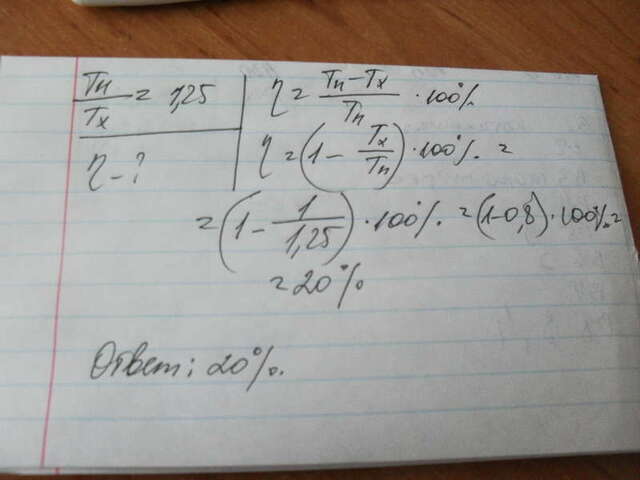 Tн/Tx = 1,25
η - ?
η = (Tн - Tx)/Tн · 100%
η = (1 - Tx/Tн) · 100% =
= (1 - 1/1,25) · 100% = (1-0,8) · 100% =
= 20%
Ответ: 20%.